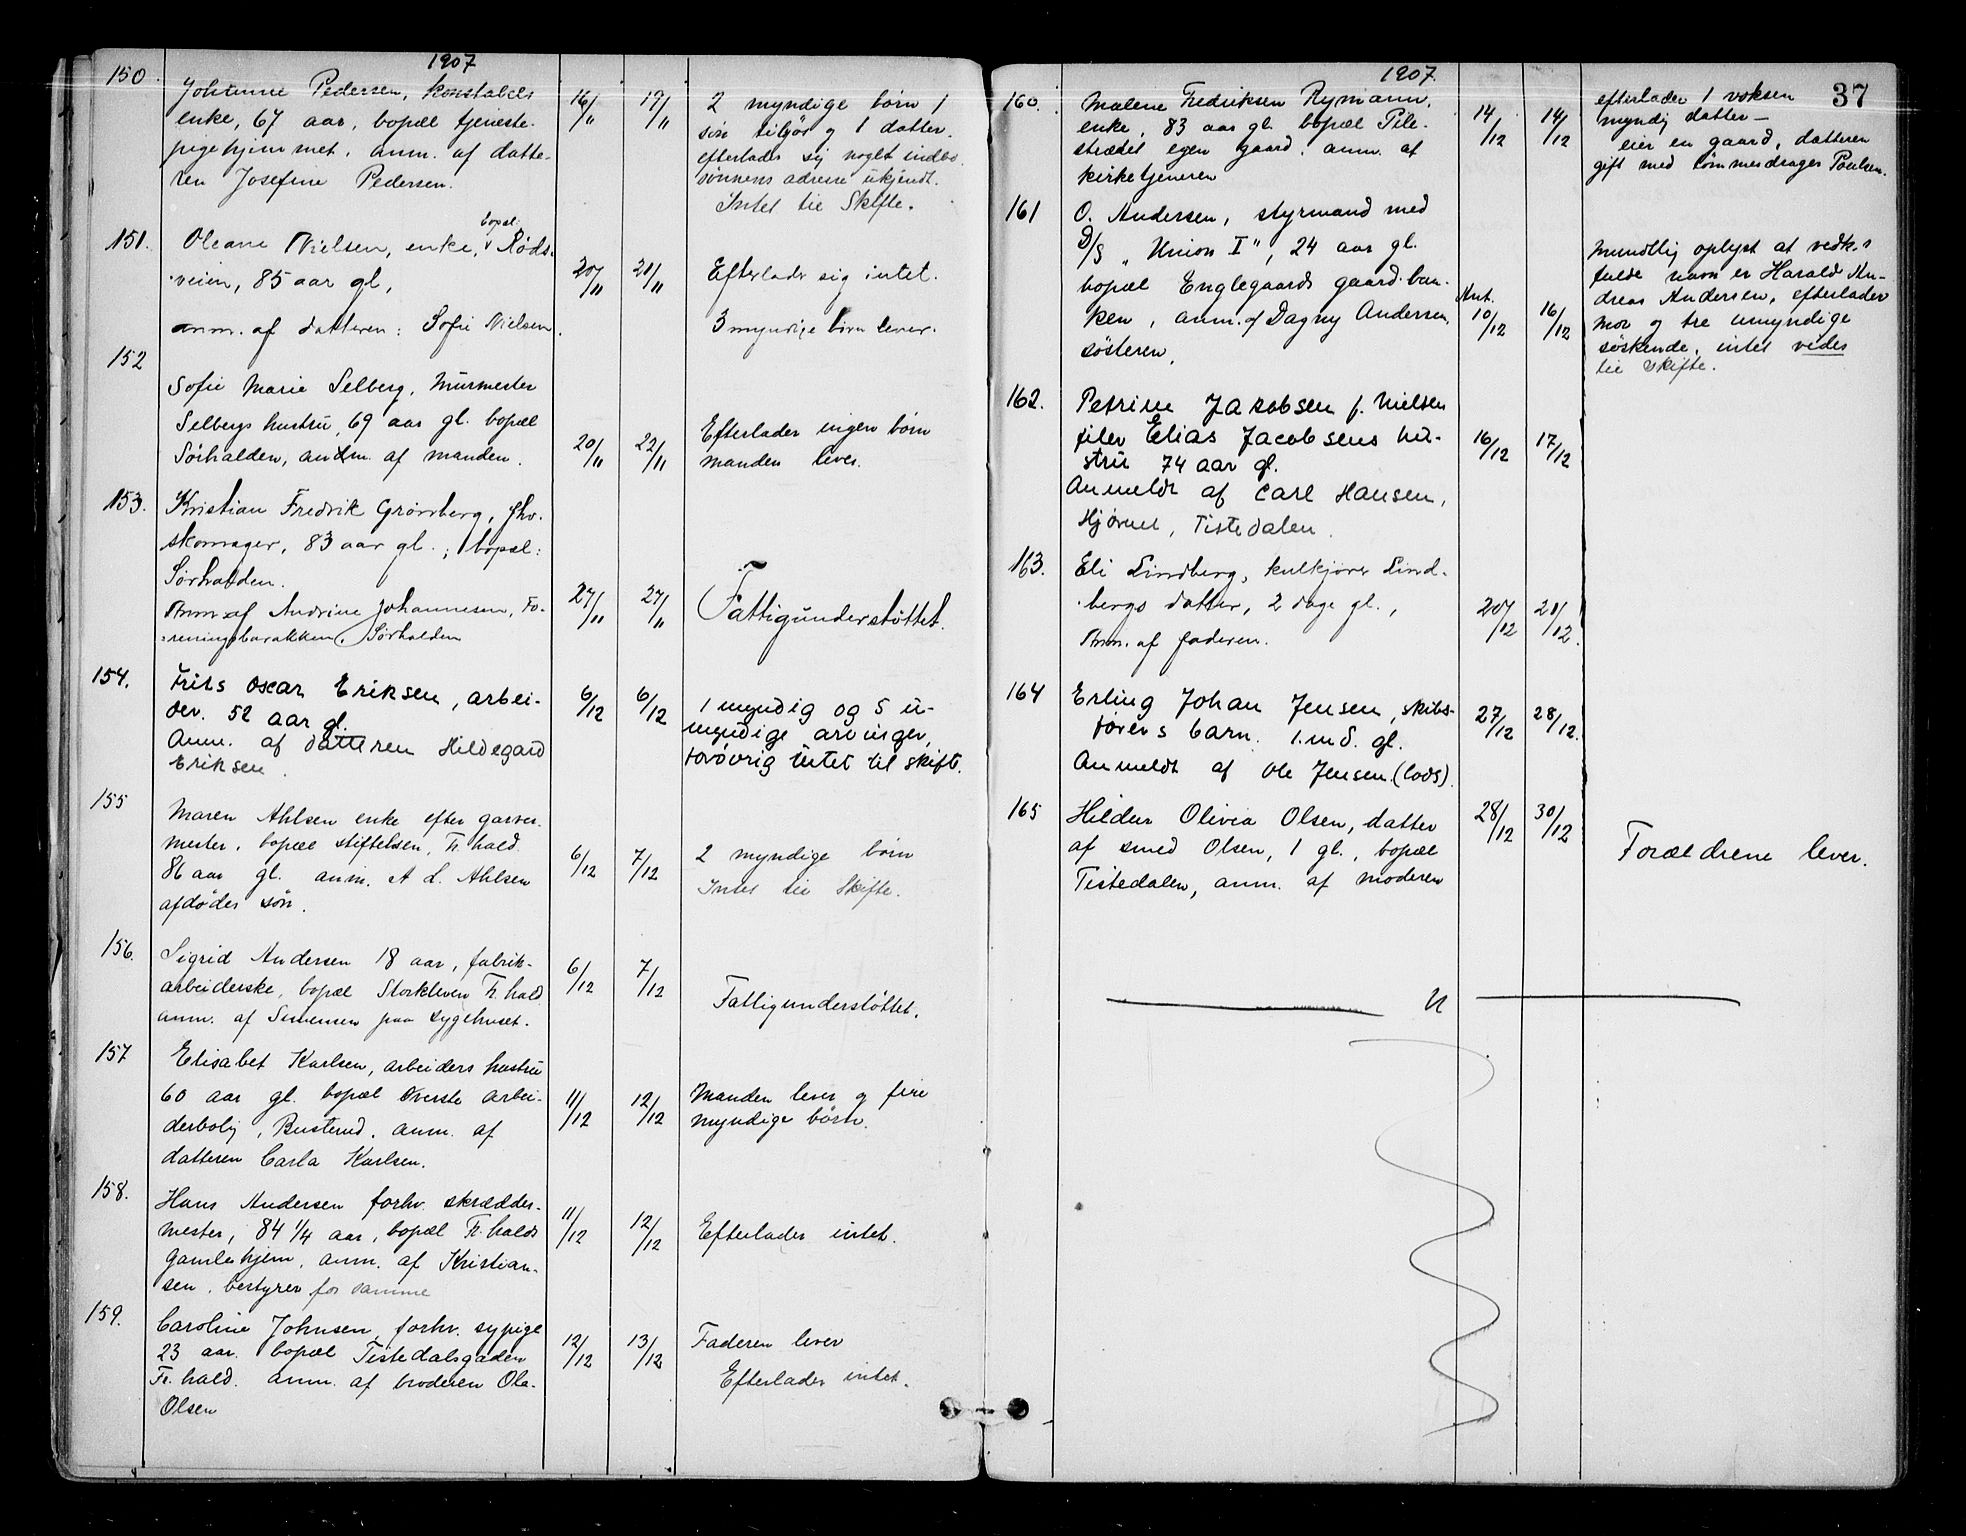 1907
150.
Johanne Pedersen, konstabels
enke, 67 aar, bopæl tjeneste-
pigehjemmet, anm. af datte-
ren Josefine Pedersen.
16/11
19/11
2 myndige børn 1
søn tilsjøs og 1 datter.
efterlader sig noget indbo.
sønnens adresse ukjendt.
Intet til Skifte.
151.
bopæl
Oleane Nielsen, enke, Røds-
veien, 85 aar gl,
anm. af datteren: Sofie Nielsen.
20/11
21/11
Efterlader sig intet.
3 myndige børn lever.
152
Sofie Marie Selberg, Murmester
Selbergs hustru, 69 aar gl. bopæl
Sørhalden, anm. af manden.
20/11
22/11
Efterlader ingen børn
manden lever.
153.
Kristian Fredrik Grønberg, fhv.
skomager, 83 aar gl.; bopæl:
Sørhalden.
Anm. af Andrine Johannesen, Fo-
reningsbarakken, Sørhalden
27/11
27/11
Fattigunderstøttet.
154.
Frits Oscar Eriksen, arbei-
der. 52 aar gl.
Anm. af datteren Hildegard
Eriksen.
6/12
6/12
1 myndig og 5 u-
myndige arvinger,
forøvrig intet til skifte.
155
Maren Ahlsen enke efter garver-
mester, bopæl stiftelsen, Fr.hald.
86 aar gl. anm. A L. Ahlsen
afdødes søn.
6/12
7/12
2 myndige børn
Intet til Skifte.
156.
Sigrid Andersen 18 aar, fabrik-
arbeiderske, bopæl Storkleven Fr.hald
anm. af Simensen paa sygehuset.
6/12
7/12
Fattigunderstøttet.
157
Elisabet Karlsen, arbeiders hustru
60 aar gl. bopæl Øverste arbei-
derbolig, Busterud. anm. af
datteren Carla Karlsen.
11/12
12/12
Manden lever og fire
myndige børn.
158.
Hans Andersen forhv. skrædder-
mester, 84 1/4 aar, bopæl Fr.halds
Gamlehjem, anm. af Kristian-
sen, bestyrer for samme
11/12
12/12
Efterlader intet.
159.
Caroline Johnsen, forhv. sypige
23 aar. bopæl Tistedalsgaden
Fr.hald. anm. af broderen Ole
Olsen
12/12
13/12
Faderen lever
Efterlader intet.
1907
37
160.
Malene Fedriksen Rymann,
enke, 83 aar gl. bopæl Pile-
strædet egen gaard. anm. af
kirketjeneren
14/12
14/12
efterlader 1 voksen
myndig datter —
eier en gaard, datteren
gift med tømmerdrager Paulsen.
161
O. Andersen, styrmand med
D/S „Union I", 24 aar gl.
bopæl Englegaards gaard. ban-
ken, anm. af Dagny Andersen,
søsteren,
Ant.
10/12
16/12
Mundtlig oplyst at vedk.s
fulde navn er Harald An-
dreas Andersen, efterlader
mor og tre umyndige
søskende, intet vides
til skifte.
162.
Petrine Jakobsen f. Nielsen
filer Elias Jacobsens hu-
stru 74 aar gl.
Anmeldt af Carl Hansen,
Hjørnet, Tistedalen.
16/12
17/12
163.
Eli Lindberg, kulkjører Lind-
bergs datter, 2 dage gl.,
Anm. af faderen.
20/12
21/12.
164
Erling Johan Jensen, skibs-
førers barn. 1. md. gl.
Anmeldt af Ole Jensen. (lods).
27/12
28/12.
165
Hildur Olivia Olsen, datter
af smed Olsen, 1 gl., bopæl
Tistedalen, anm. af moderen
28/12
30/12
Forældrene lever.